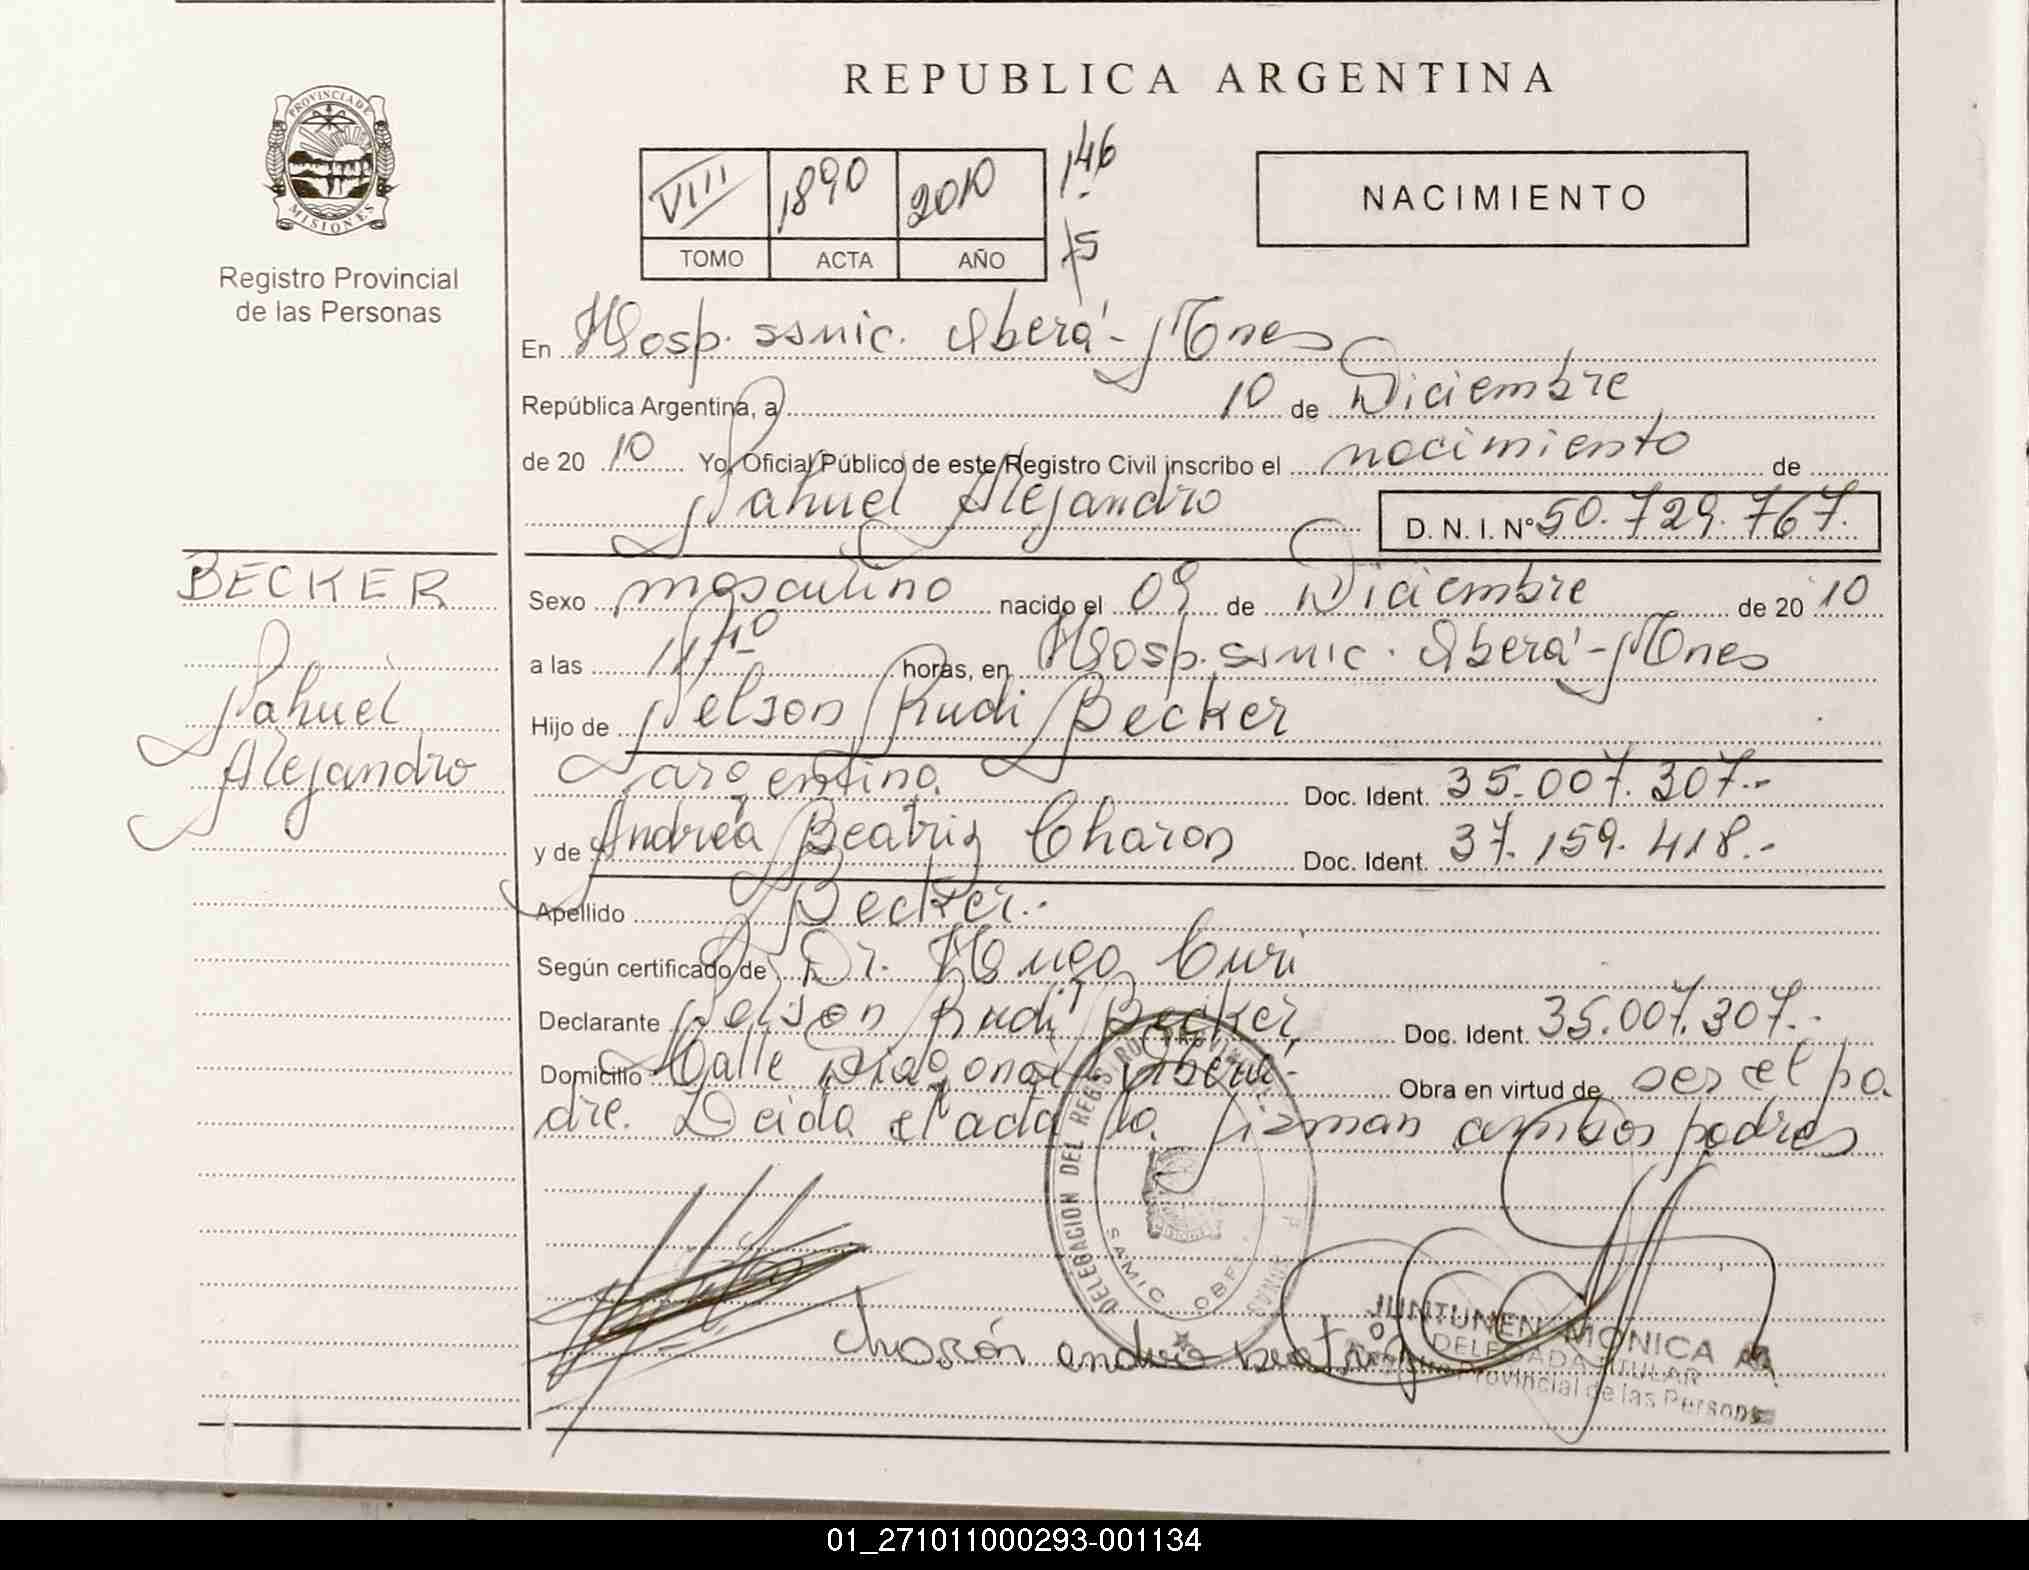 REPUBLICA ARGENTINA
PROVINCIA DE
MISIONES
Registro Provincial
de las Personas
VIII 1890 2010 146
TOMO ACTA AÑO
75
NACIMIENTO
En Hosp. Samic. Oberá - Mnes
República Argentina, a 10 de Diciembre
de 20 10 Yo, Oficial Público de este Registro Civil inscribo el nacimiento de
Nahuel Alejandro D. N. I. Nº 50.729.767.
BECKER
Nahuel
Alejandro
Sexo masculino nacido el 09 de Diciembre de 20 10
a las horas, en Hosp. Samic. Oberá - Mnes
Hijo de Nelson Rudi Becker
argentino. Doc. Ident. 35.007.307.-
y de Andrea Beatriz Charon Doc. Ident. 37.159.418.-
Apellido Becker.-
Según certificado de Dr. Hugo Curi
Declarante Nelson Rudi Becker Doc. Ident. 35.007.307.-
Domicilio Calle Diagonal Oberá.- Obra en virtud de ser el pa
dre. Leida el acta la firman ambos padres
DELEGACION DEL REGISTRO PROVINCIAL
SAMIC OBE
Charón andrea beatriz
MONICA
DELEGADA TITULAR
Registro Provincial de las Personas
01_271011000293-001134